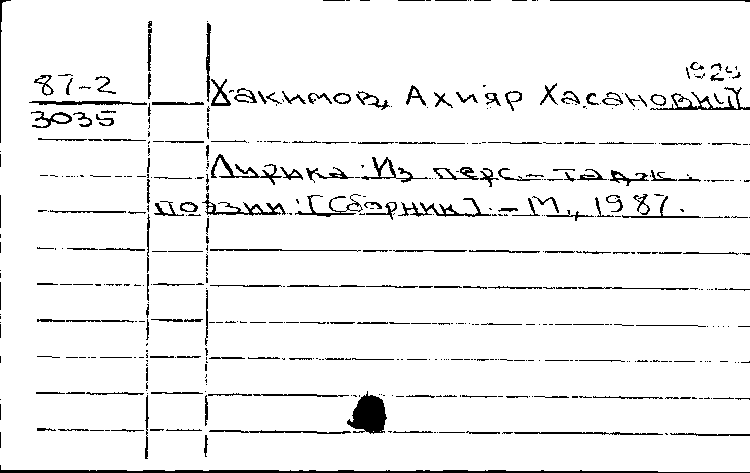 1929
87-2
3035
Хакимов, Ахияр Хасанович
Лирика: Из перс.-тадж.
поэзии: [Сборник]. - М., 1987.